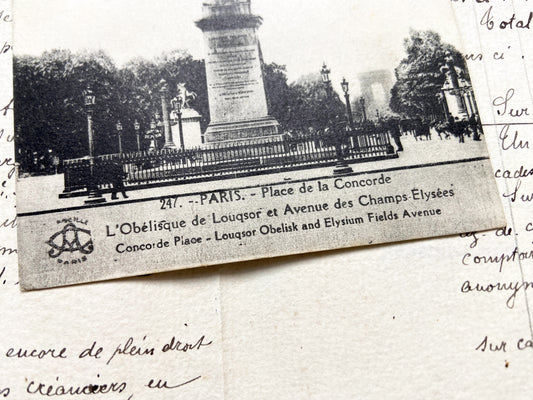 Total
ns ci.
Sur
Un
cades
247. -- PARIS. - Place de la Concorde
L'Obélisque de Louqsor et Avenue des Champs-Elysées
Concorde Place - Louqsor Obelisk and Elysium Fields Avenue
PARIS
g de c
comptai
anonym
encore de plein droit
s créanciers, en
Sur ca